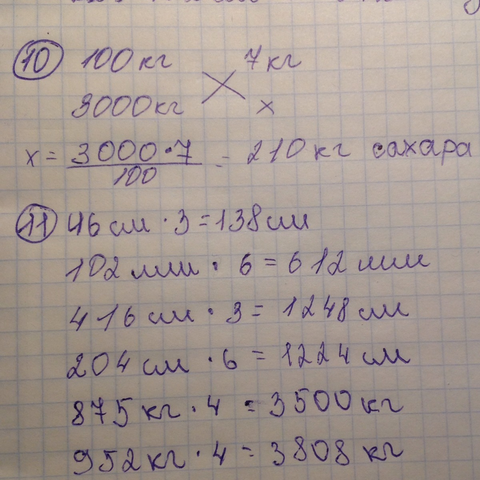 10 100 кг 7 кг
3000 кг x
x = 3000·7 / 100 = 210 кг сахара
11 46 см · 3 = 138 см
102 мм · 6 = 612 мм
416 см · 3 = 1248 см
204 см · 6 = 1224 см
875 кг · 4 = 3500 кг
952 кг · 4 = 3808 кг